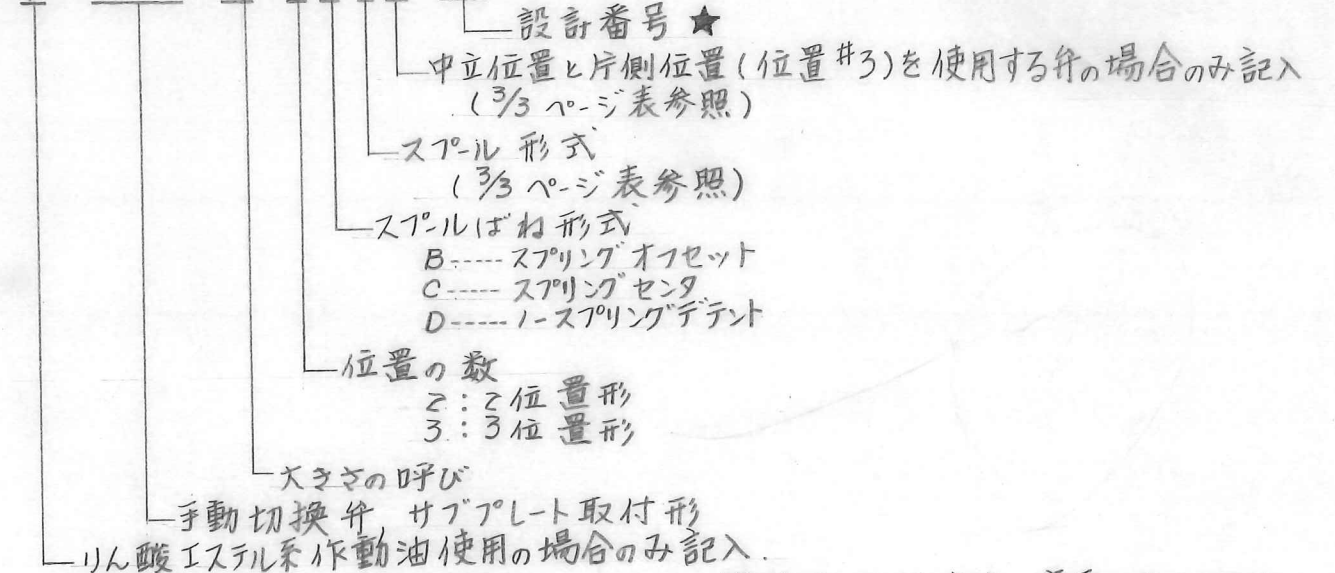 設計番号 ★
中立位置と片側位置(位置#3)を使用する弁の場合のみ記入
(3/3 ページ表参照)
スプール形式
(3/3 ページ表参照)
スプールばね形式
B----- スプリングオフセット
C----- スプリングセンタ
D----- ノースプリングデテント
位置の数
2:2位置形
3:3位置形
大きさの呼び
手動切換弁, サブプレート取付形
りん酸エステル系作動油使用の場合のみ記入.